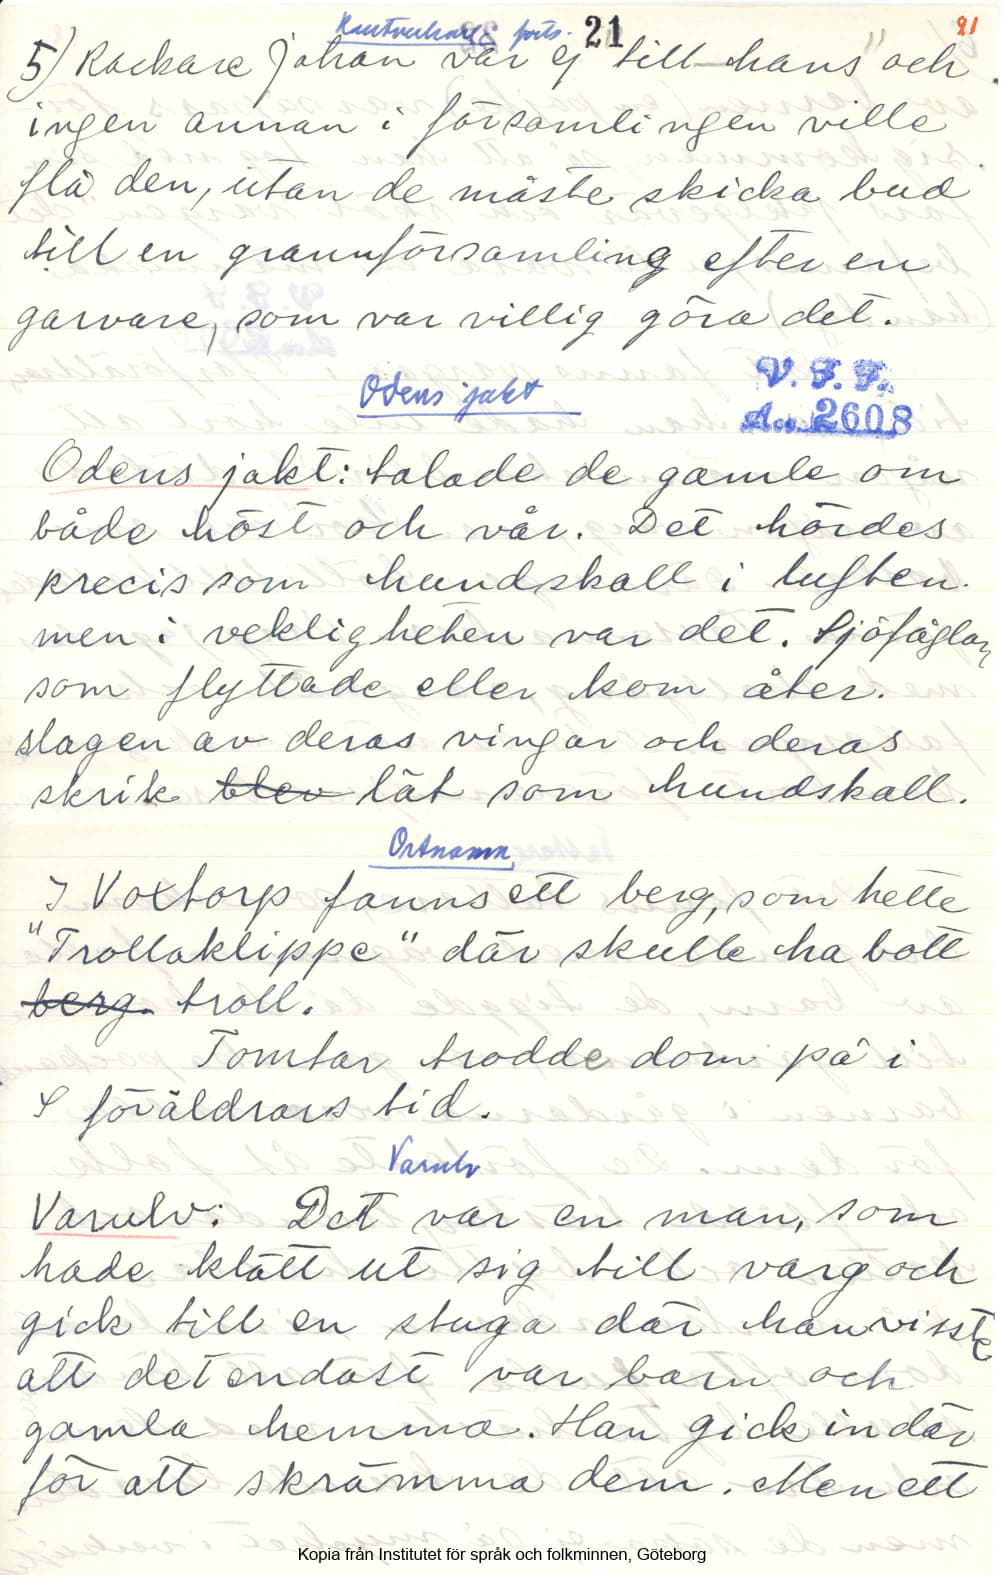 Hantverkare forts. 21 21
5) Rackare Johan var ej till hans" och
ingen annan i församlingen ville
flå den, utan de måste skicka bud
till en grannförsamling efter en
garvare, som var villig göra det.
Odens jakt
V. F. F.
Acc. 2608
Odens jakt: talade de gamle om
både höst och vår. Det hördes
precis som hundskall i luften.
men i vekligheten var det. Sjöfåglar,
som flyttade eller kom åter.
slagen av deras vingar och deras
skrik blev lät som hundskall.
Ortnamn
I Voxtorp fanns ett berg, som hette
"Trollaklippe" där skulle ha bott
berg. troll.
Tomtar trodde dom på i
S föräldrars tid.
Varulv
Varulv: Det var en man, som
hade klätt ut sig till varg och
gick till en stuga där han visste
att det endast var barn och
gamla hemma. Han gick in där
för att skrämma dem. Men ett
Kopia från Institutet för språk och folkminnen, Göteborg